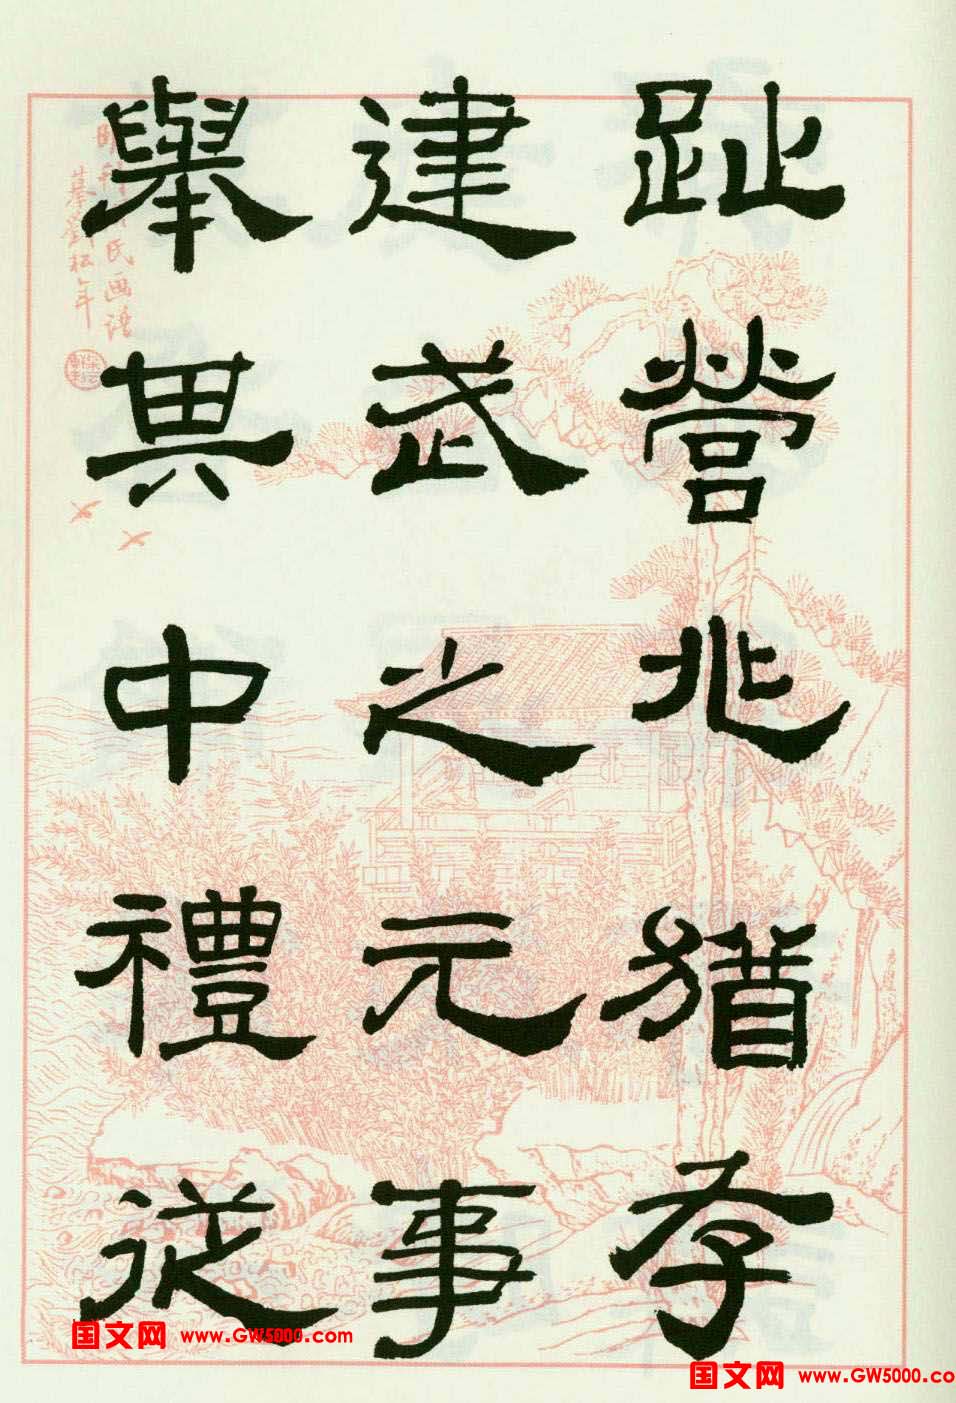 趾營兆猶存
建武之元事
舉其中禮從
氏画譜
摹劉松年
国文网 www.GW5000.com
国文网 www.GW5000.co